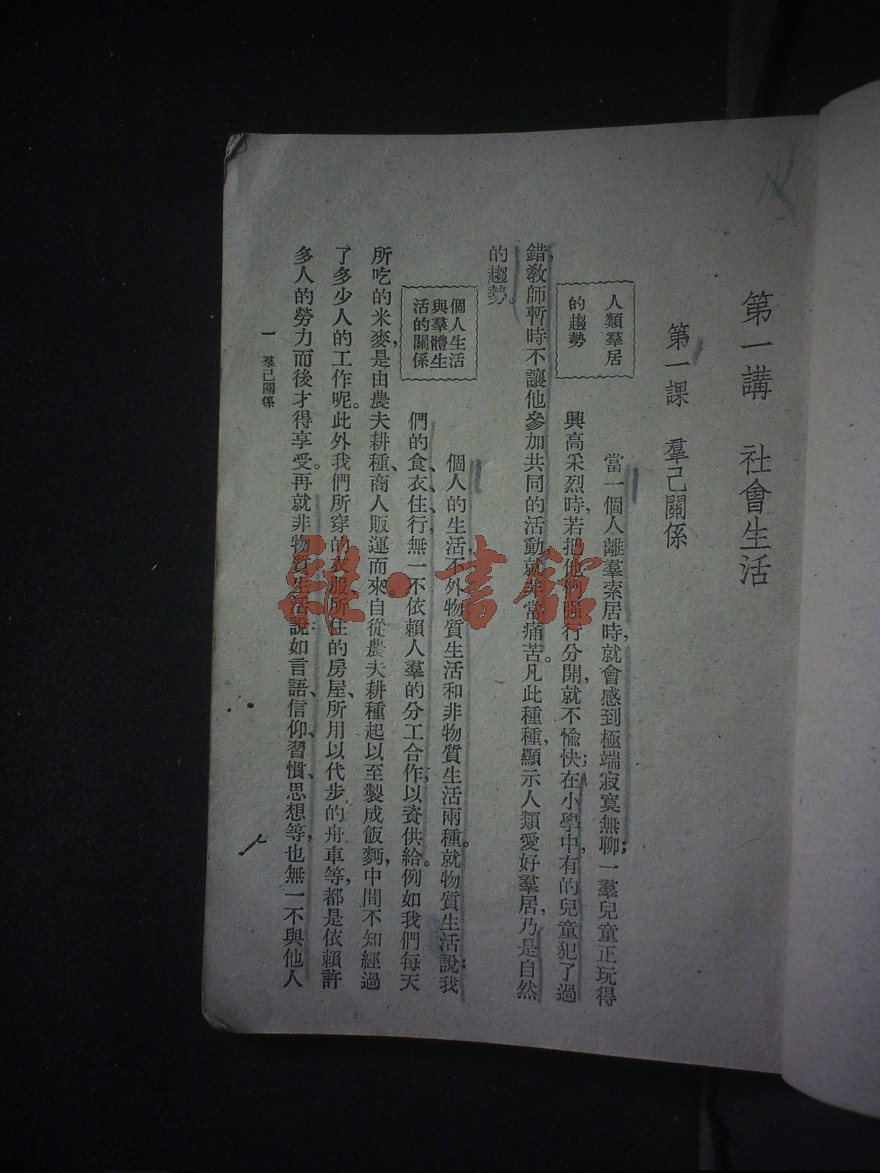 第一講　社會生活
第一課　羣己關係
人類羣居
的趨勢
當一個人離羣索居時，就會感到極端寂寞無聊；一羣兒童正玩得
興高采烈時，若把他們強行分開，就不愉快；在小學中，有的兒童犯了過
錯，教師暫時不讓他參加共同的活動，就非常痛苦。凡此種種，顯示人類愛好羣居，乃是自然
的趨勢。
個人生活
與羣體生
活的關係
個人的生活，不外物質生活和非物質生活兩種。就物質生活說：我
們的食、衣、住、行，無一不依賴人羣的分工合作，以資供給。例如我們每天
所吃的米麥，是由農夫耕種、商人販運而來。自從農夫耕種起，以至製成飯麵，中間不知經過
了多少人的工作呢。此外我們所穿的衣服、所住的房屋、所用以代步的舟車等，都是依賴許
多人的勞力而後才得享受。再就非物質生活說：如言語、信仰、習慣、思想等，也無一不與他人
一　羣己關係
書館